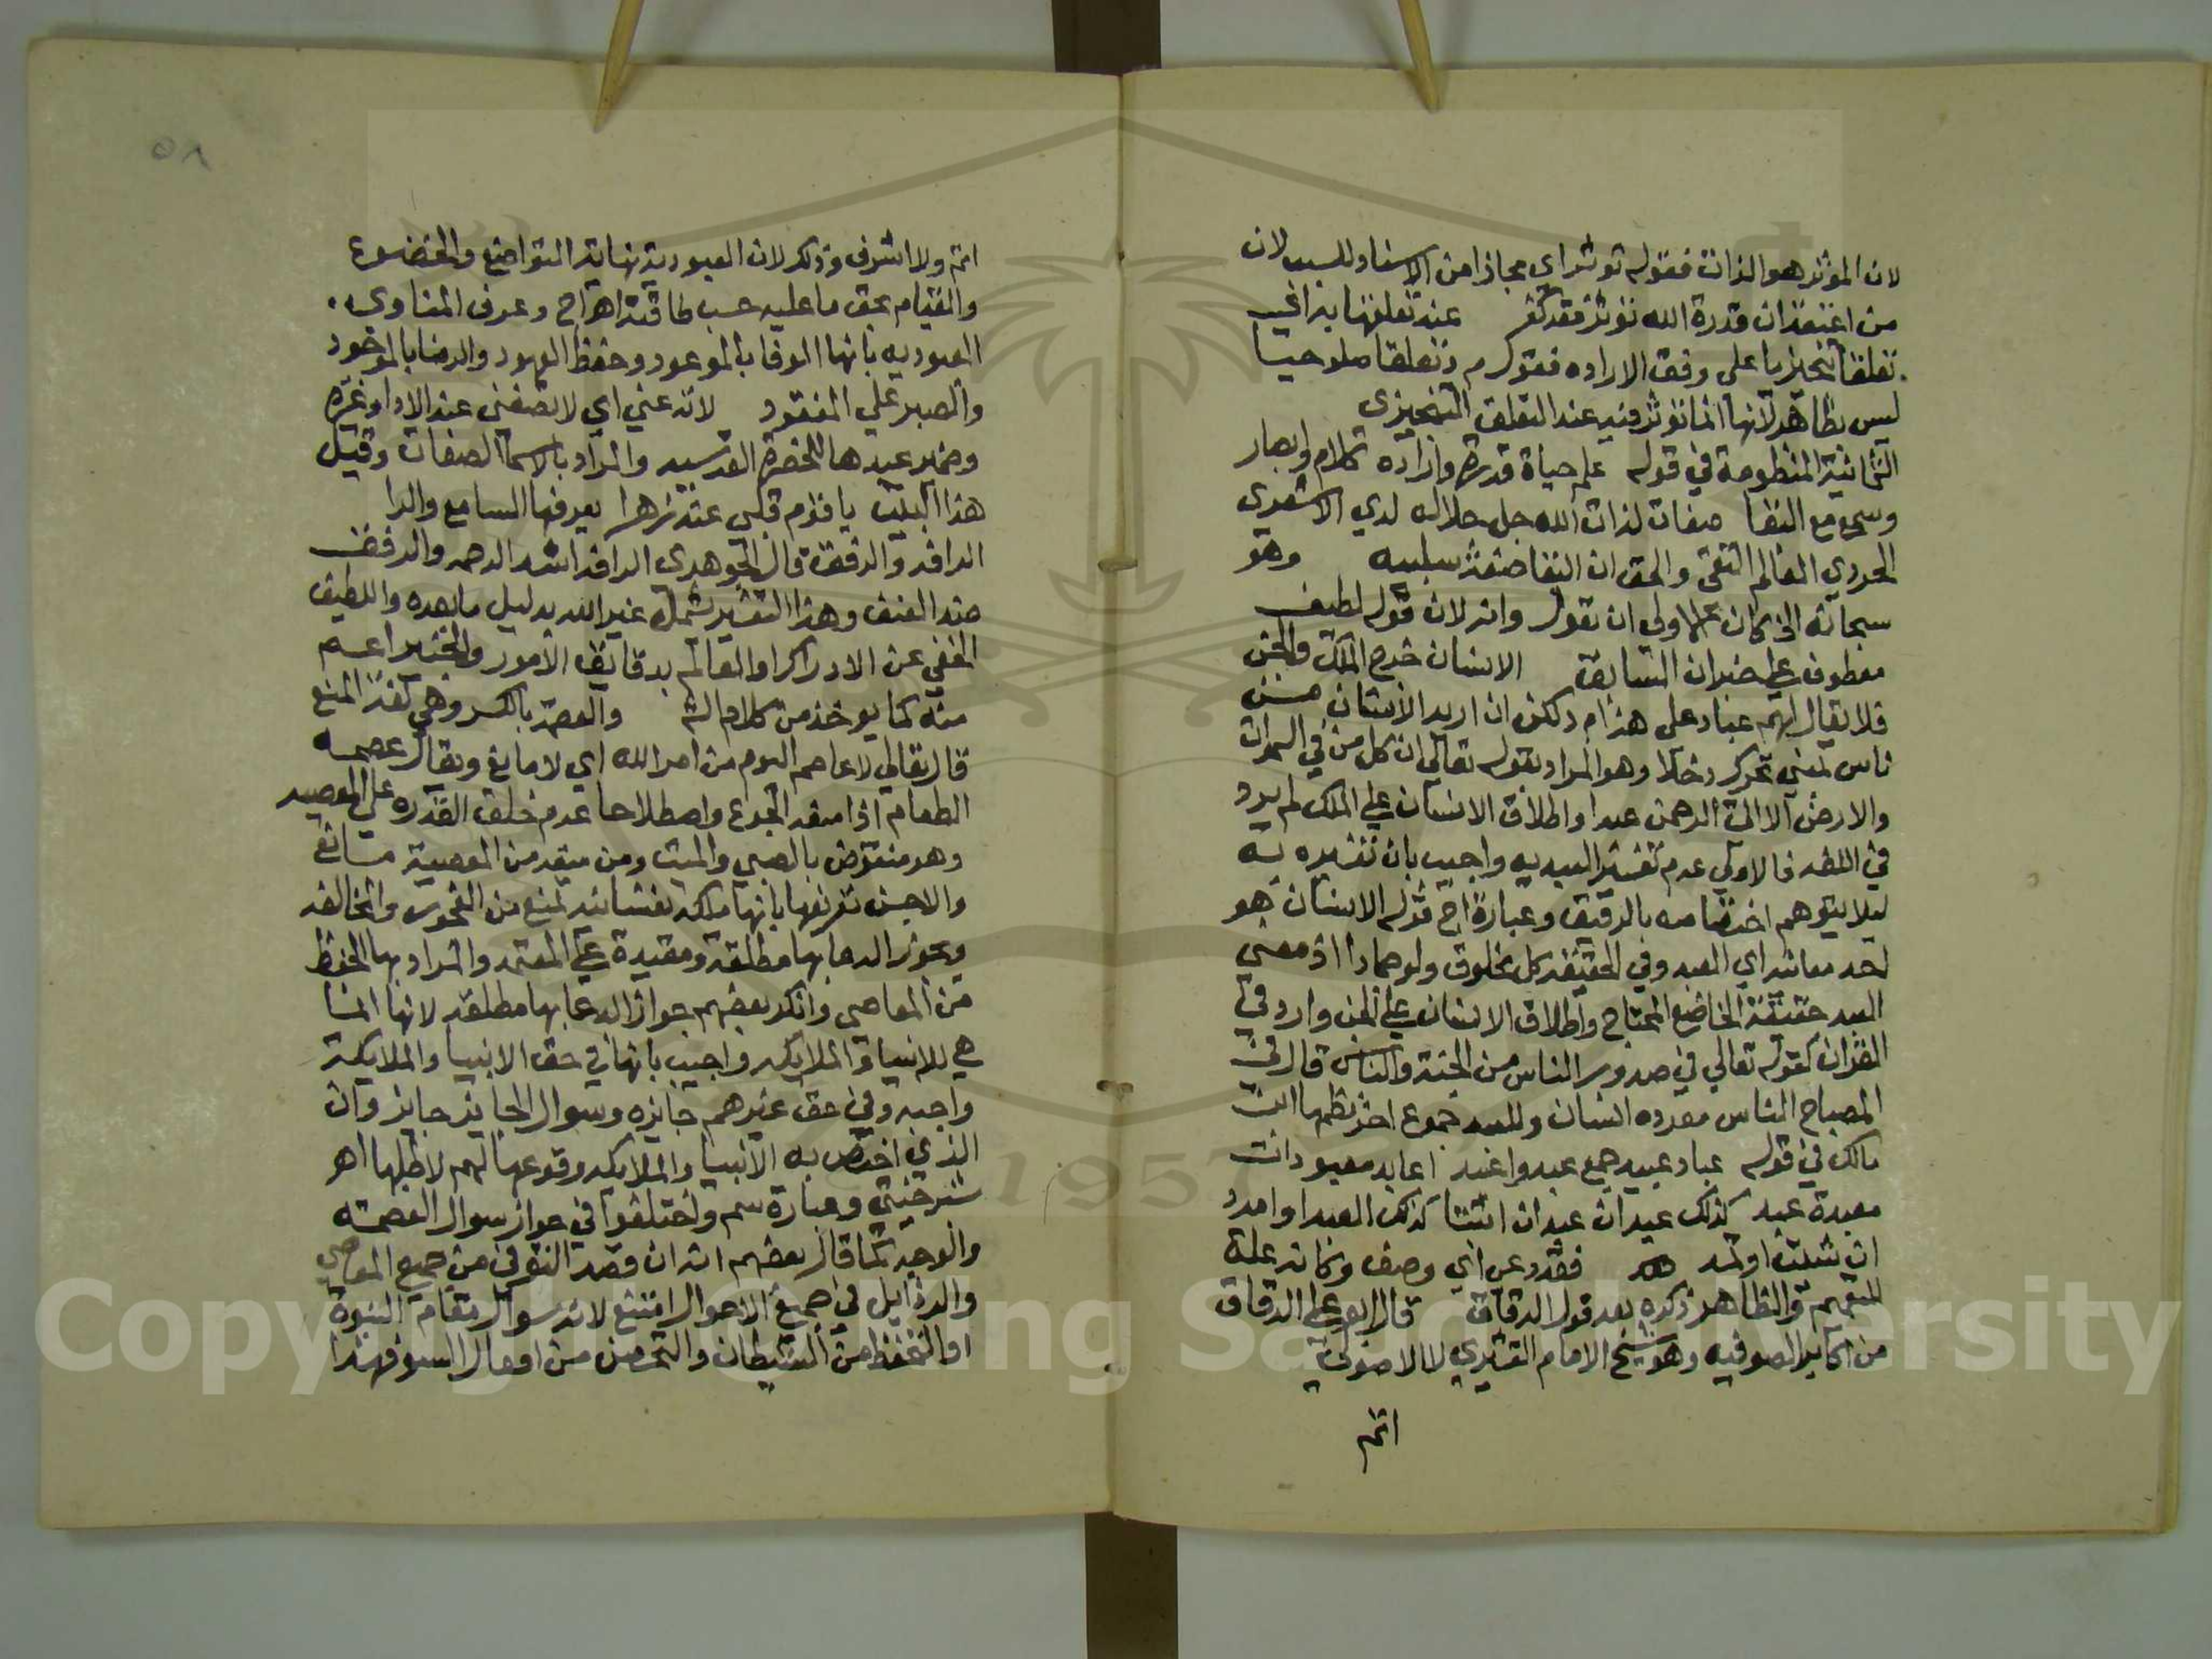 لان المؤثر هو الذات فقوله تؤثر اي مجازا من الاسناد للسبب لان
من اعتقد ان قدرة الله تؤثر فقد كفر عند تعلقها به اي
تعلقا تنجيزيا على وفق الاراده فقول م وتعلقا صلوحيا
ليس بظاهر لانها انما تؤثر فيه عند التعلق التنجيزي
الثمانية المنظومة في قوله علم حياة قدرة وارادة كلام وابصار
وسمع مع البقا صفات لذات الله جل جلاله لدي الاشعري
الحبر ذي العالم التقي والحق ان البقا صفة سلبيه وهو
سبحانه الخ كان الاولي ان يقول وانه لان قوله لطيف
معطوف علي خبر ان السابقة الانسان خرج الملك والجن
فلا يقال لهم عباد على هذا م ولكن ان اريد الانسان من
ناس بمعني تحرك دخلا وهو المراد بقوله تعالي ان كل من في السموات
والارض الا اتي الرحمن عبدا واطلاق الانسان علي الملك لم يرد
في اللغه فالاولي عدم تفسير العبد به واجيب بان تفسيره به
ليلا يتوهم اختصاصه بالرقيق وعبارة اج قوله الانسان هو
احد معانيه اي العبد وفي الحقيقه كل مخلوق ولو جمادا اذ معني
العبد حقيقة الخاضع المحتاج واطلاق الانسان علي الجن وارد في
القران كقوله تعالي في صدور الناس من الجنة والناس قال في
المصباح الناس مفرده انسان وللعبد جموع اخر نظمها ابن
مالك في قوله عباد عبيد جمع عبد واعبد اعابد معبودات
معبدة عبد كذلك عبدان عبدان اثبتا كذلك العبدا وامدد
ان شيت اولمد فقد دعي اي وصف وكانه علة
للتعميم والظاهر ذكره بعد قول الدقاق قال ابو علي الدقاق
من اكابر الصوفيه وهو شيخ الامام القشيري لا الاصولي
اتم
٥٨
اتم ولا اشرف وذلك لان العبودية نهاية التواضع والخضوع
والقيام بحق ما عليه حسب طاقته اهـ اج وعرف المناوي
العبوديه بانها الوفا بالموعود وحفظ العهود والرضا بالموجود
والصبر علي المفقود لانه عني اي لا تصفني عبد الا وغيره
وضمير عبدها للحضرة القدسيه والمراد بالاسما الصفات وقيل
هذا البيت يا قوم قلبي عند زهرا يعرفها السامع والرا
الرافه والرفقة قال الجوهري الرافه اشد الرحمه والرفق
ضد العنف وهذا التفسير يشمل غير الله بدليل ما بعده واللطيف
الخفي عن الادراك او العالم بدقايق الامور والخبير اعم
منه كما يوخذ من كلام الش والعصمة بالكسر وهي لغة المنع
قال تعالي لا عاصم اليوم من امر الله اي لا مانع ويقال عصمه
الطعام اذا منعه الجوع واصطلاحا عدم خلق القدره علي المعصيه
وهو منقوض بالصبي والميت ومن منعه من المعصية مانع
والاحسن تعريفها بانها ملكة نفسانيه تمنع من الفجور والمخالفه
ويجوز الدعا بها مطلقة ومقيدة علي المعتمد والمراد بها الحفظ
من المعاصي وانكر بعضهم جواز الدعا بها مطلقه لانها انما
هي للانبيا والملايكه واجيب بانها في حق الانبيا والملايكة
واجبه وفي حق غيرهم جايزه وسوال الجايز جايز وان
الذي اختص به الانبيا والملايكه وقوعها لهم لا طلبها اهـ
شرخيتي وعبارة سم واختلفوا في جواز سوال العصمة
والوجه كما قال بعضهم انه ان قصد التوقي من جميع المعاصي
والرذايل في جميع الاحوال امتنع لانه سوال مقام النبوة
او التحفظ من الشيطان والتحصن من افعال السوء فهذا